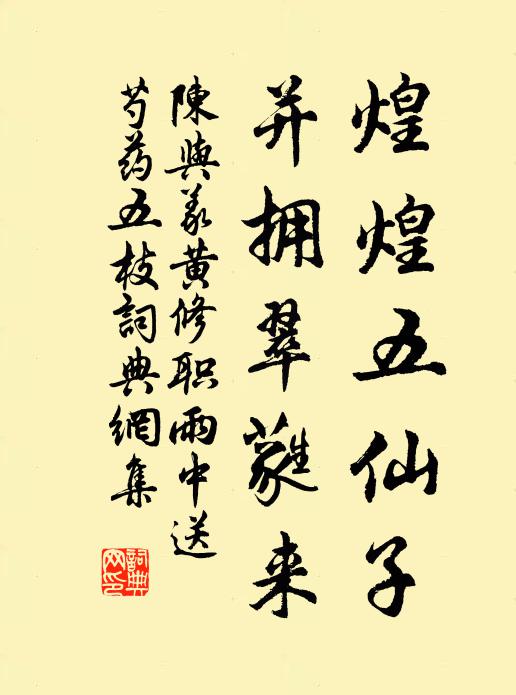 煌煌五仙子
并拥翠蕤来
陳與義黄修职雨中送
芍药五枝詞典網集
詞典网印